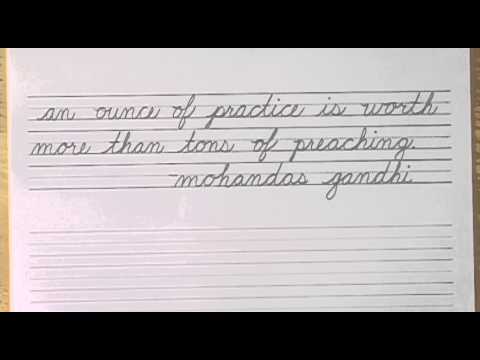 an ounce of practice is worth
more than tons of preaching.
-mohandas gandhi